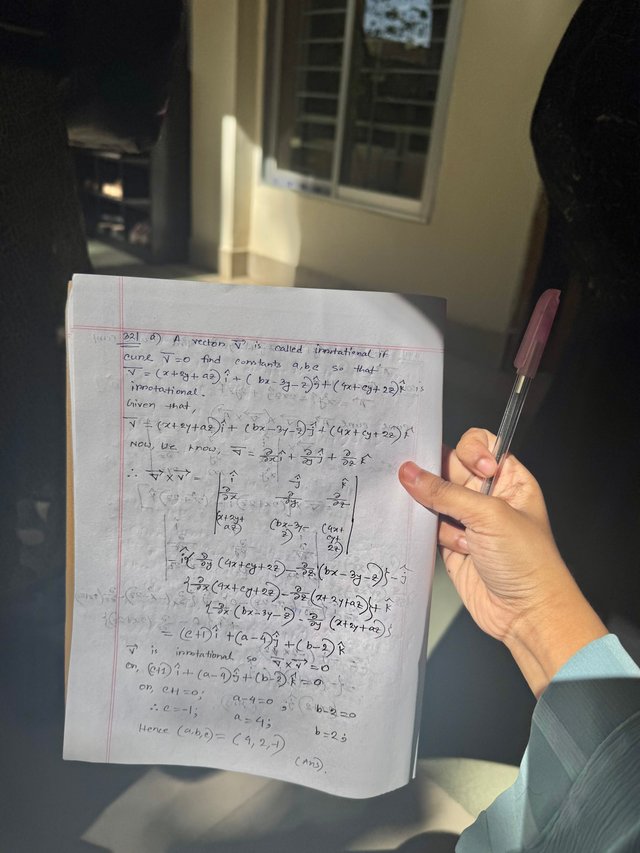 32| a) A vector V⃗ is called irrotational if
curl V⃗ = 0 find constants a,b,c so that
V⃗ = (x+2y+az)î + (bx-3y-z)ĵ + (4x+cy+2z)k̂ is
irrotational.
Given that,
V⃗ = (x+2y+az)î + (bx-3y-z)ĵ + (4x+cy+2z)k̂
Now, we know, ∇⃗ = ∂/∂x î + ∂/∂y ĵ + ∂/∂z k̂
∴ ∇⃗ × V⃗ = | î ĵ k̂
∂/∂x ∂/∂y ∂/∂z
(x+2y+az) (bx-3y-z) (4x+cy+2z) |
= î{∂/∂y (4x+cy+2z) - ∂/∂z (bx-3y-z)} - ĵ
{∂/∂x (4x+cy+2z) - ∂/∂z (x+2y+az)} + k̂
{∂/∂x (bx-3y-z) - ∂/∂y (x+2y+az)}
= (c+1)î + (a-4)ĵ + (b-2)k̂
V⃗ is irrotational so ∇⃗ × V⃗ = 0
or, (c+1)î + (a-4)ĵ + (b-2)k̂ = 0
or, c+1=0; a-4=0; b-2=0
∴ c=-1; a=4; b=2;
Hence (a,b,c) = (4,2,-1)
(Ans).